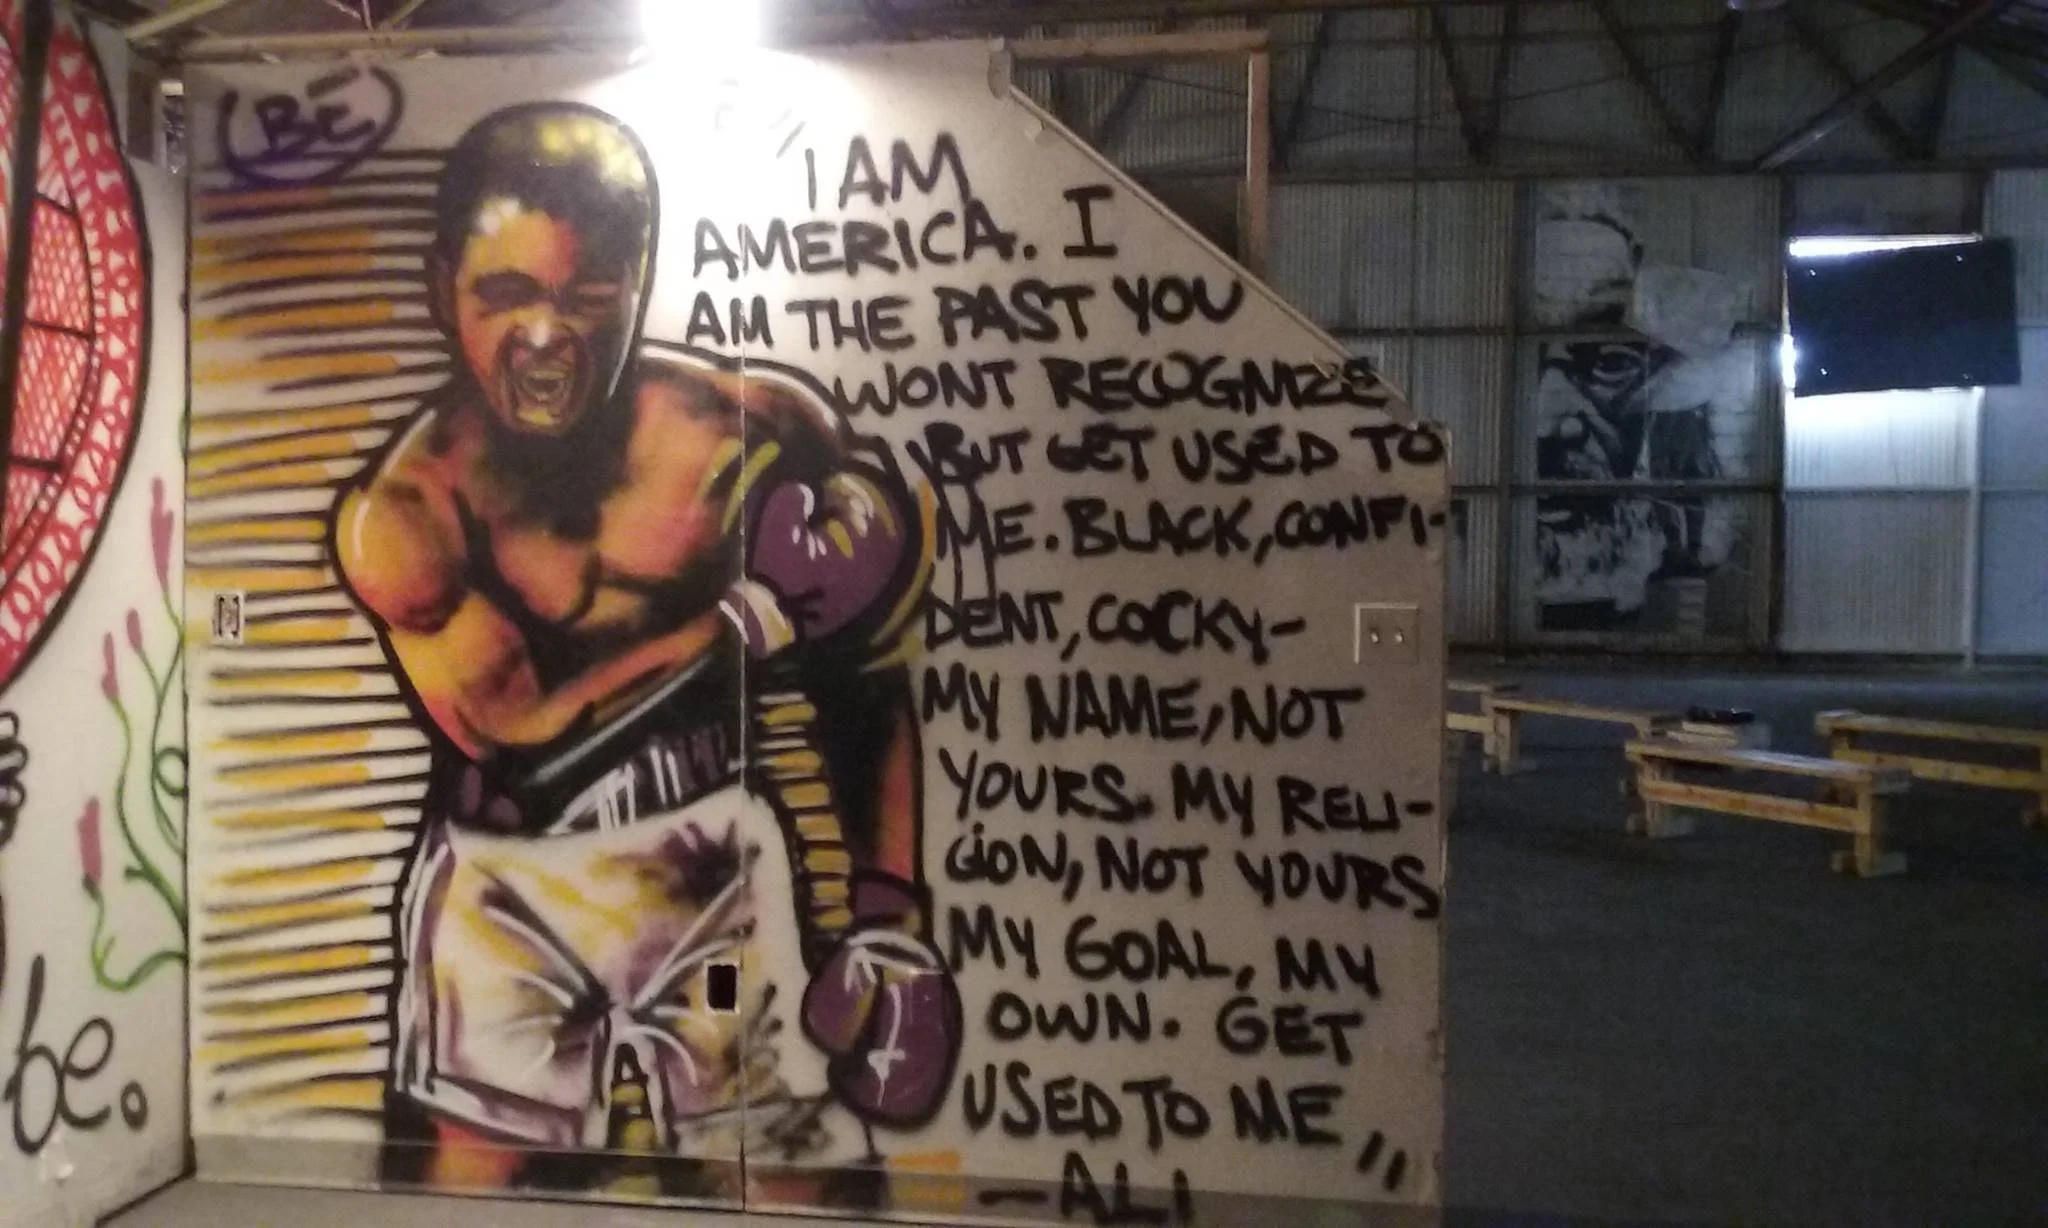 BĒ
"I AM
AMERICA. I
AM THE PAST YOU
WONT RECOGNIZE
BUT GET USED TO
ME. BLACK, CONFI-
DENT, COCKY-
MY NAME, NOT
YOURS. MY RELI-
GION, NOT YOURS
MY GOAL, MY
OWN. GET
USED TO ME"
-ALI
be.